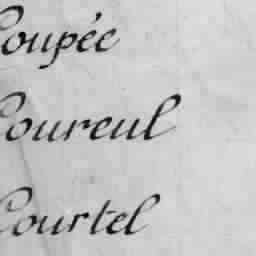 Coupée
Coureul
Courtel